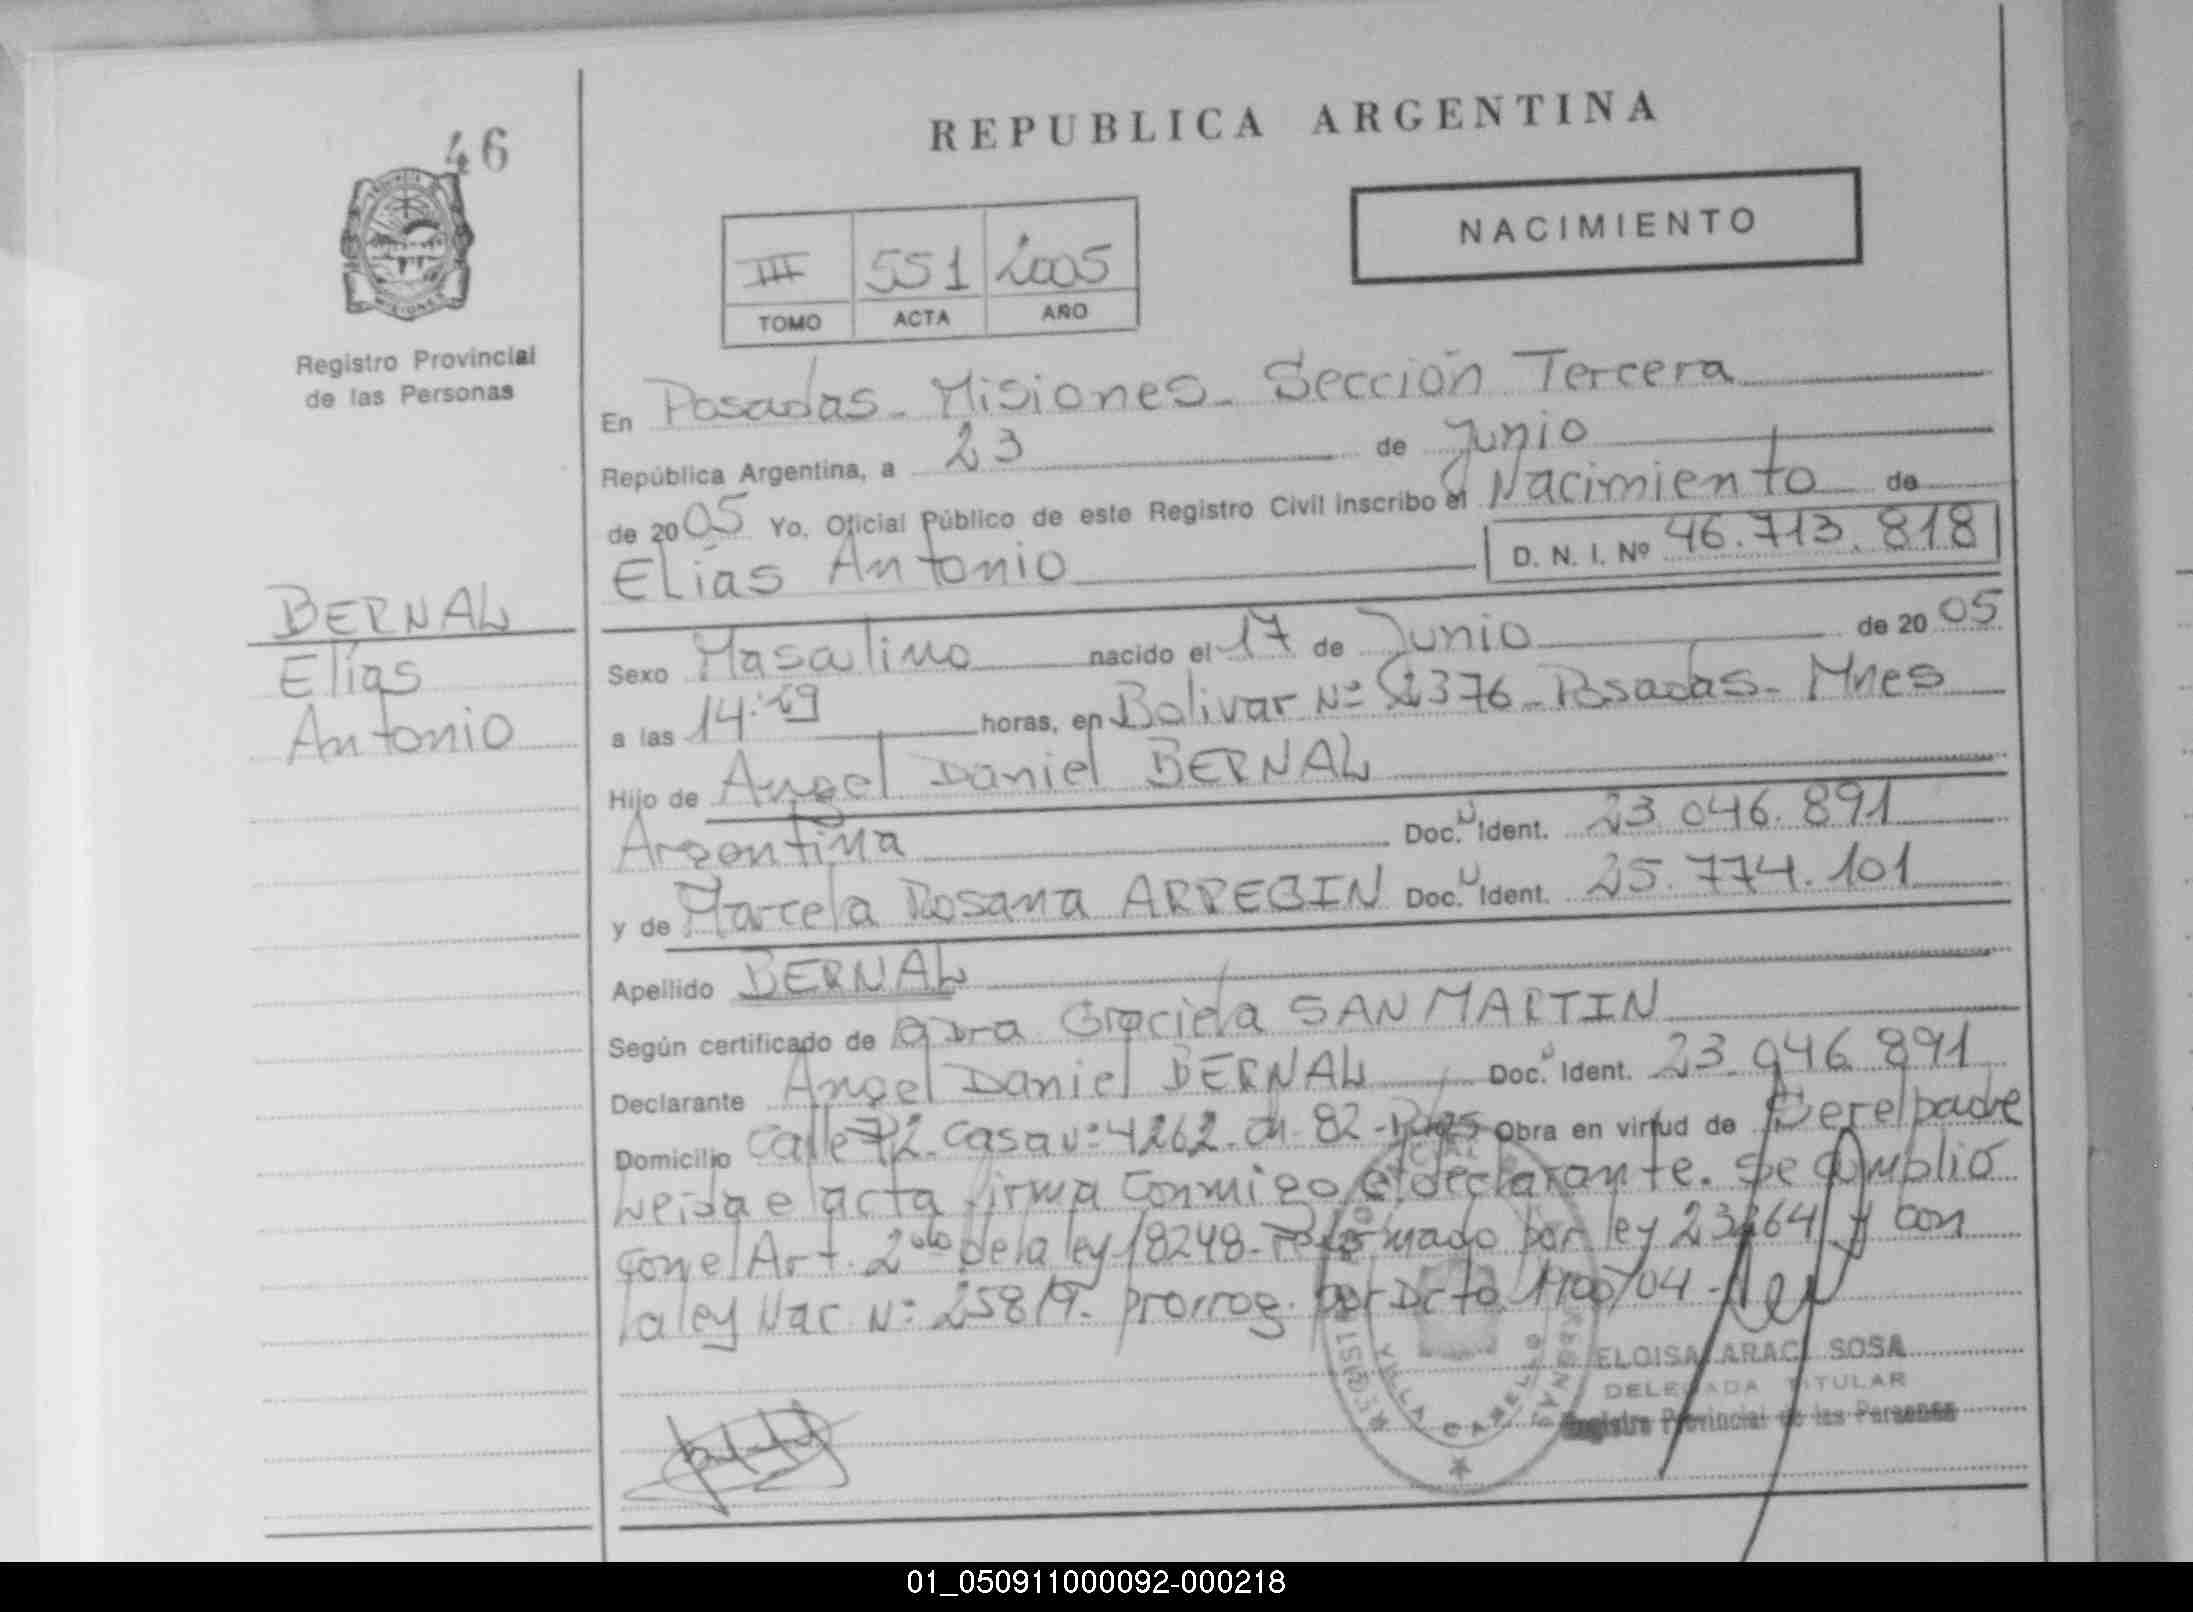 46
REPUBLICA ARGENTINA
NACIMIENTO
III 551 2005
TOMO ACTA AÑO
Registro Provincial
de las Personas
En Posadas - Misiones - Sección Tercera
República Argentina, a 23 de Junio
de 2005 Yo, Oficial Público de este Registro Civil inscribo el Nacimiento de
Elias Antonio D. N. I. Nº 46.713.818
BERNAL
Elías
Antonio
Sexo Masculino nacido el 17 de Junio de 2005
a las 14:29 horas, en Bolivar Nº 2376 - Posadas - Mnes
Hijo de Angel Daniel BERNAL
Argentina Doc. N Ident. 23.046.891
y de Marcela Rosana ARREGIN Doc. Ident. 25.774.101
Apellido BERNAL
Según certificado de Dra Graciela SAN MARTIN
Declarante Angel Daniel BERNAL Doc. Ident. 23.046.891
Domicilio Calle 72 - Casa Nº 4262 - Ch. 82 - Pdas Obra en virtud de Ser el padre
Leida el acta firma Conmigo el declarante. Se Cumplio
con el Art. 2do de la ley 18248 - Reformado por ley 23264 y con
la ley Nac Nº 25819 - prorrog. por Dcto 1100/04 -
ELOISA ARACI SOSA
DELEGADA TITULAR
Registro Provincial de las Personas
VILLA CABELLO
01_050911000092-000218